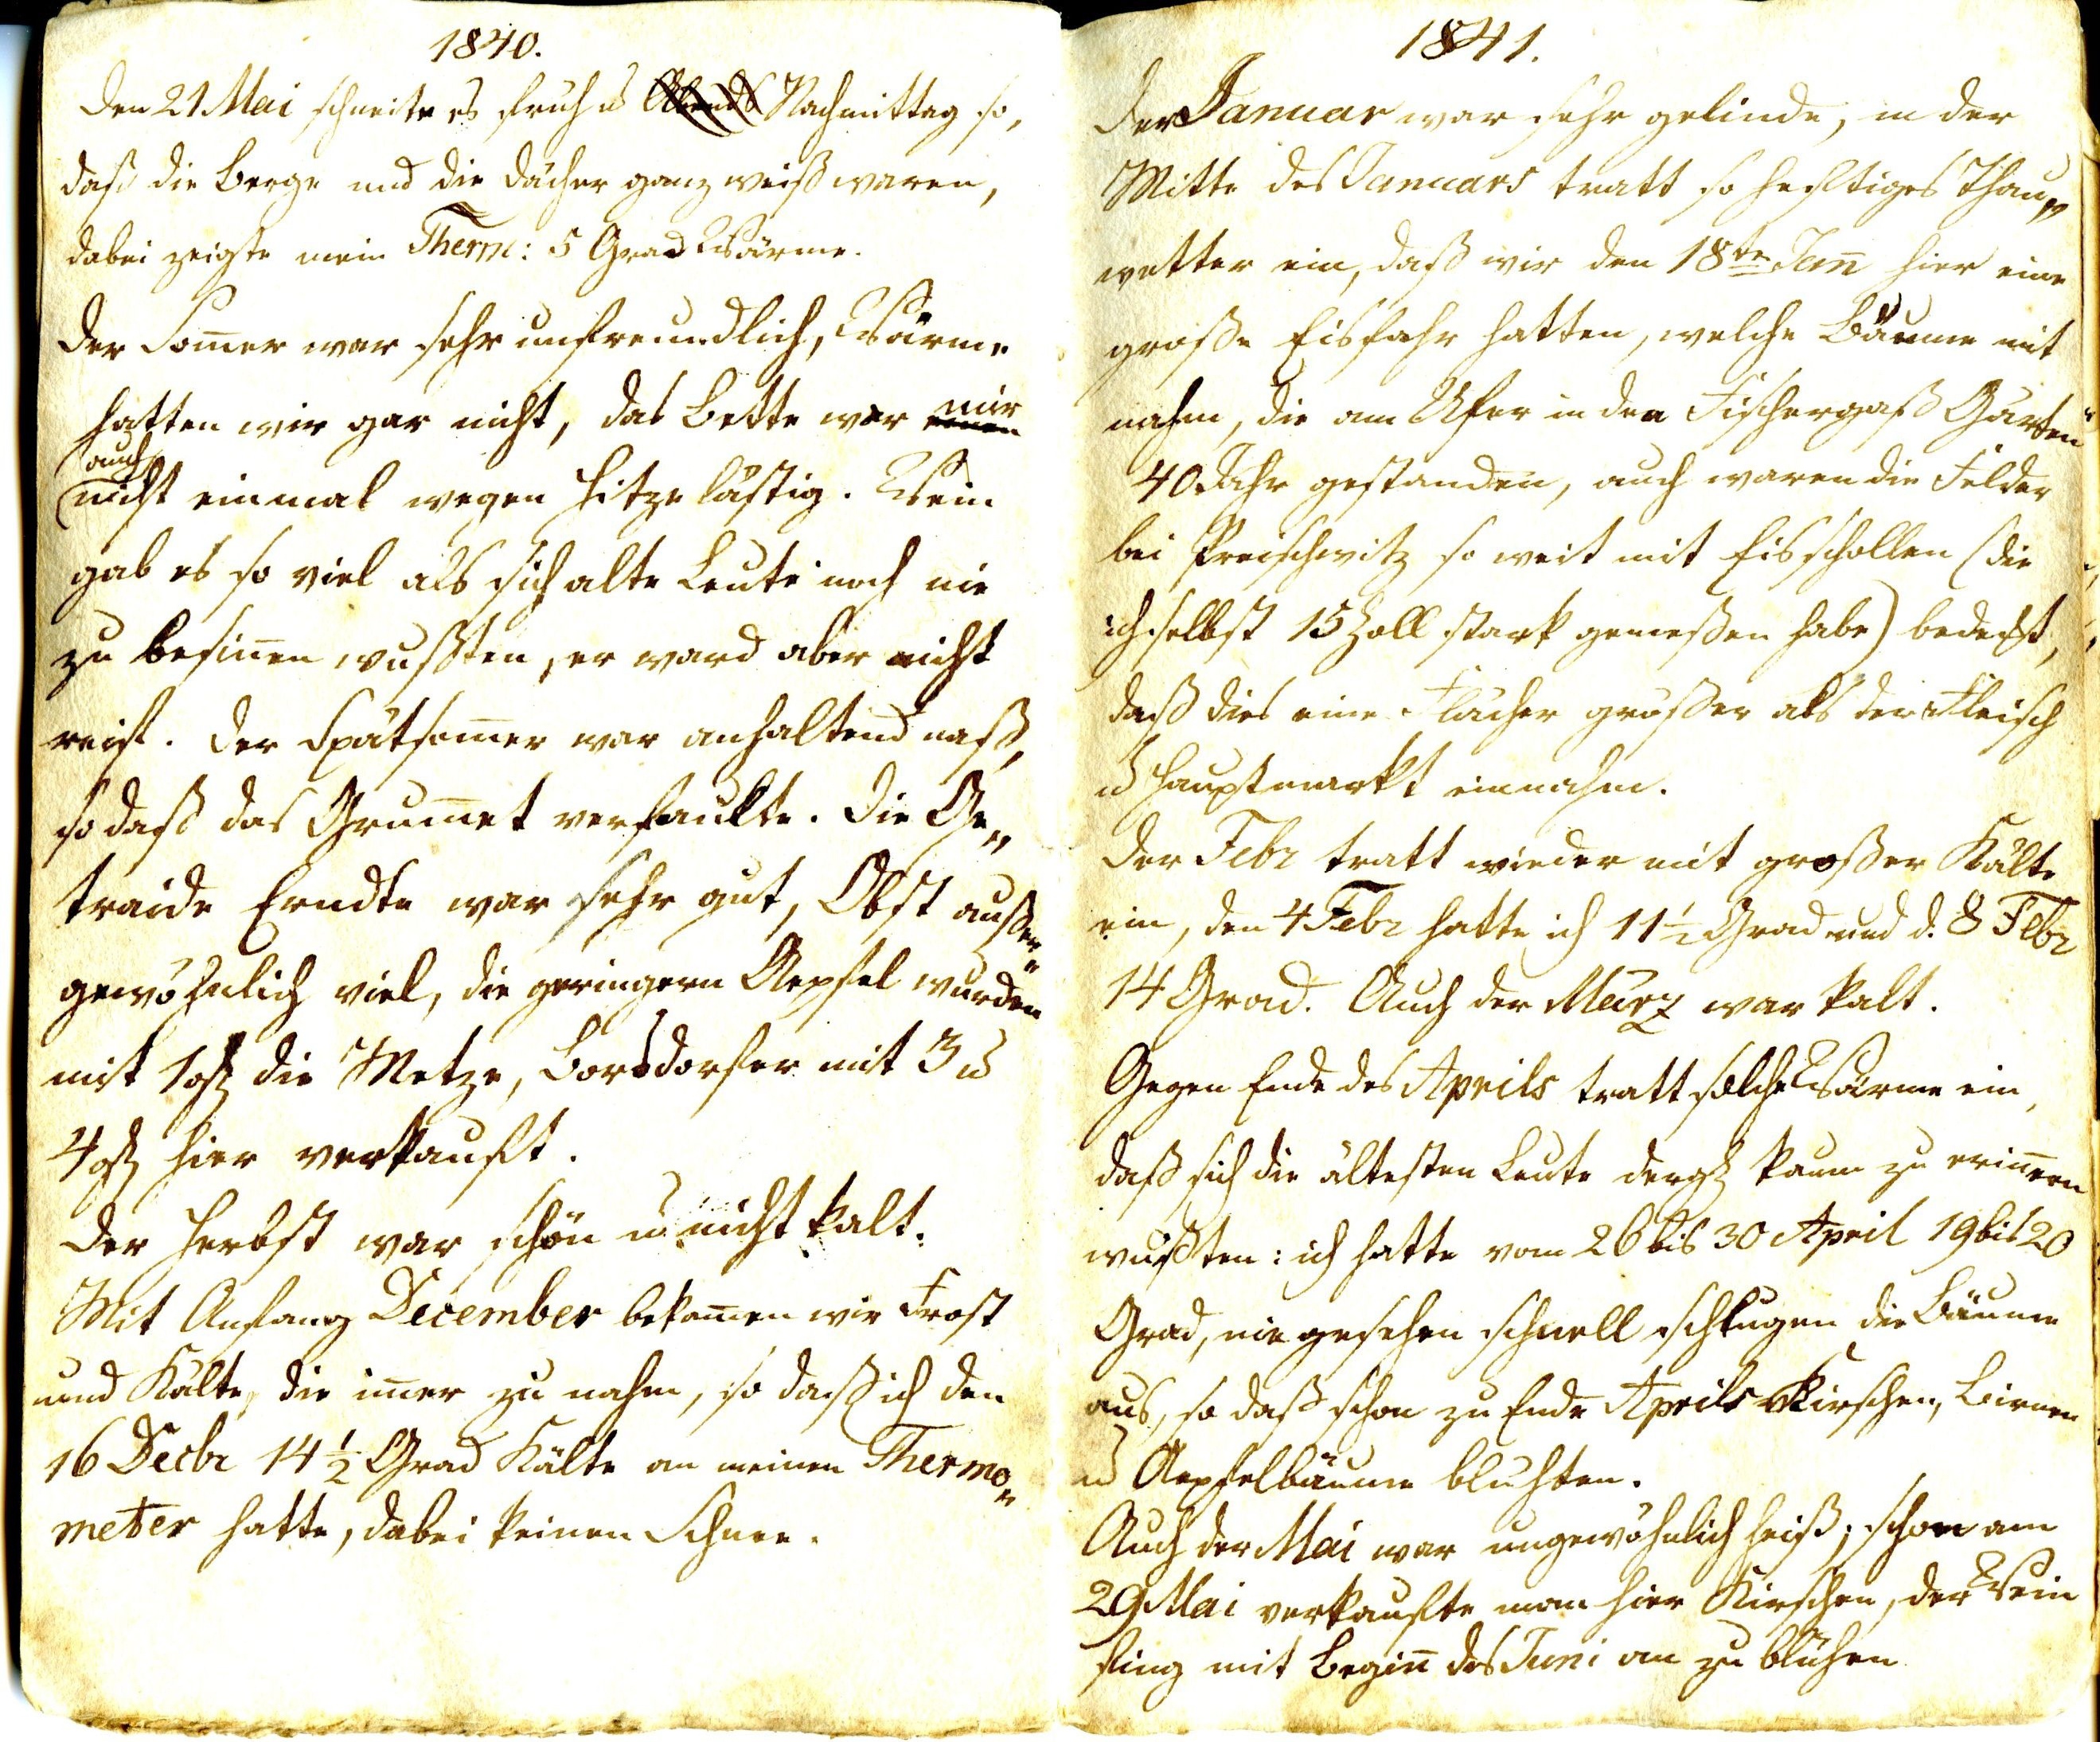 1840.
Den 21 Mai schneite es fruh u Abends Nachmittag so,
daß die Berge und die Dächer ganz weiß waren,
dabei zeigte mein Therm: 5 Grad Wärme.
Der Som̅er war sehr unfreundlich, Wärme
hatten wir gar nicht, das Bette war mir
auch
nicht einmal wegen Hitze lästig. Wein
gab es so viel als sich alte Leute noch nie
zu besin̅en wußten, er ward aber nicht
reif. Der Spätsom̅er war anhaltend naß,
so daß das Grum̅et verfaulte. Die Ge„
traide Erndte war sehr gut, Obst außer„
gewöhnlich viel, die geringern Aepfel wurden
mit 1 gl die Metze, Borsdorfer mit 3 u
4 gl hier verkauft.
Der Herbst war schön u nicht kalt.
Mit Anfang December bekam̅en wir Frost
und Kälte, die im̅er zu nahm, so daß ich den
16 Decbr 14 ½ Grad Kälte an meinen Thermo„
meter hatte, dabei keinen Schnee.
1841.
Der Januar war sehr gelinde, in der
Mitte des Januars tratt so heftiges Thau„
wetter ein, daß wir den 18ten Jan̅ hier eine
große Eisfahr hatten, welche Bäume mit
nahm, die am Ufer in den Fischergaß Gärten
40 Jahr gestanden, auch waren die Felder
bei Preischwitz so weit mit Eisschollen (die
ich selbst 15 Zoll stark gemeßen habe) bedeckt,
daß dies eine Flächer größer als der Fleisch
u Hauptmarkt einnahm.
Der Febr tratt wieder mit großer Kälte
ein, den 4 Febr hatte ich 11 ½ Grad und d. 8 Febr
14 Grad. Auch der März war kalt.
Gegen Ende des Aprils tratt solche Wärme ein,
daß sich die ältesten Leute dergl kaum zu erin̅ern
wußten: ich hatte vom 26 bis 30 April 19 bis 20
Grad, nie gesehen schnell schlugen die Bäume
aus, so daß schon zu Ende Aprils Kirschen, Birnen
u Aepfelbäume bluhten.
Auch der Mai war ungewöhnlich heiß; schon am
29 Mai verkaufte man hier Kirschen, der Wein
fing mit Begin̅ des Juni an zu blühen